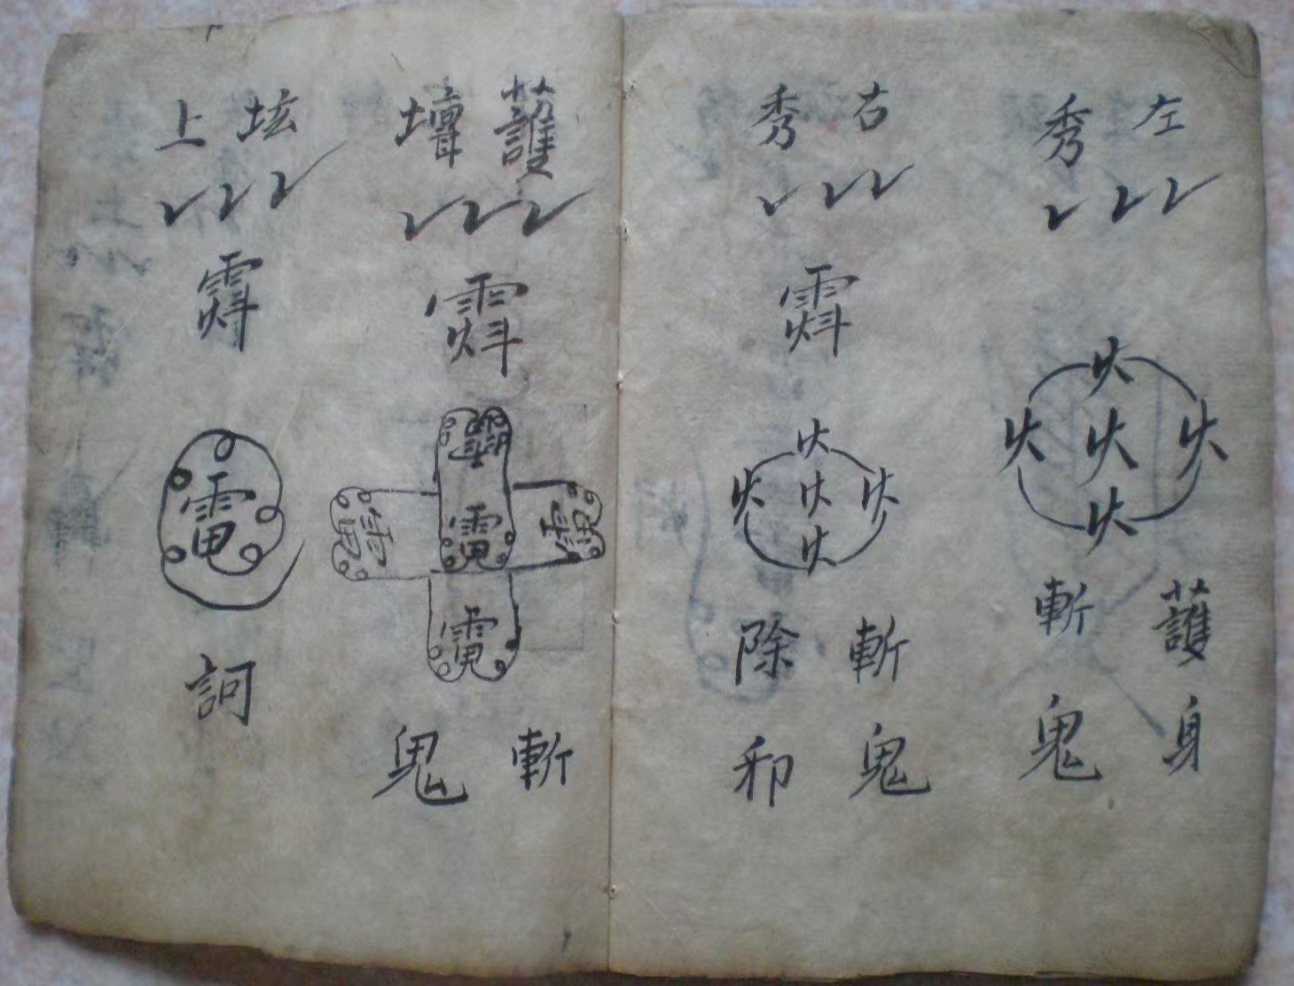 左秀
火
火火火
火
護身
斬鬼
右秀
火
火火火
火
斬鬼
除邪
護壇
電
電
電
斬鬼
坛上
電
訶